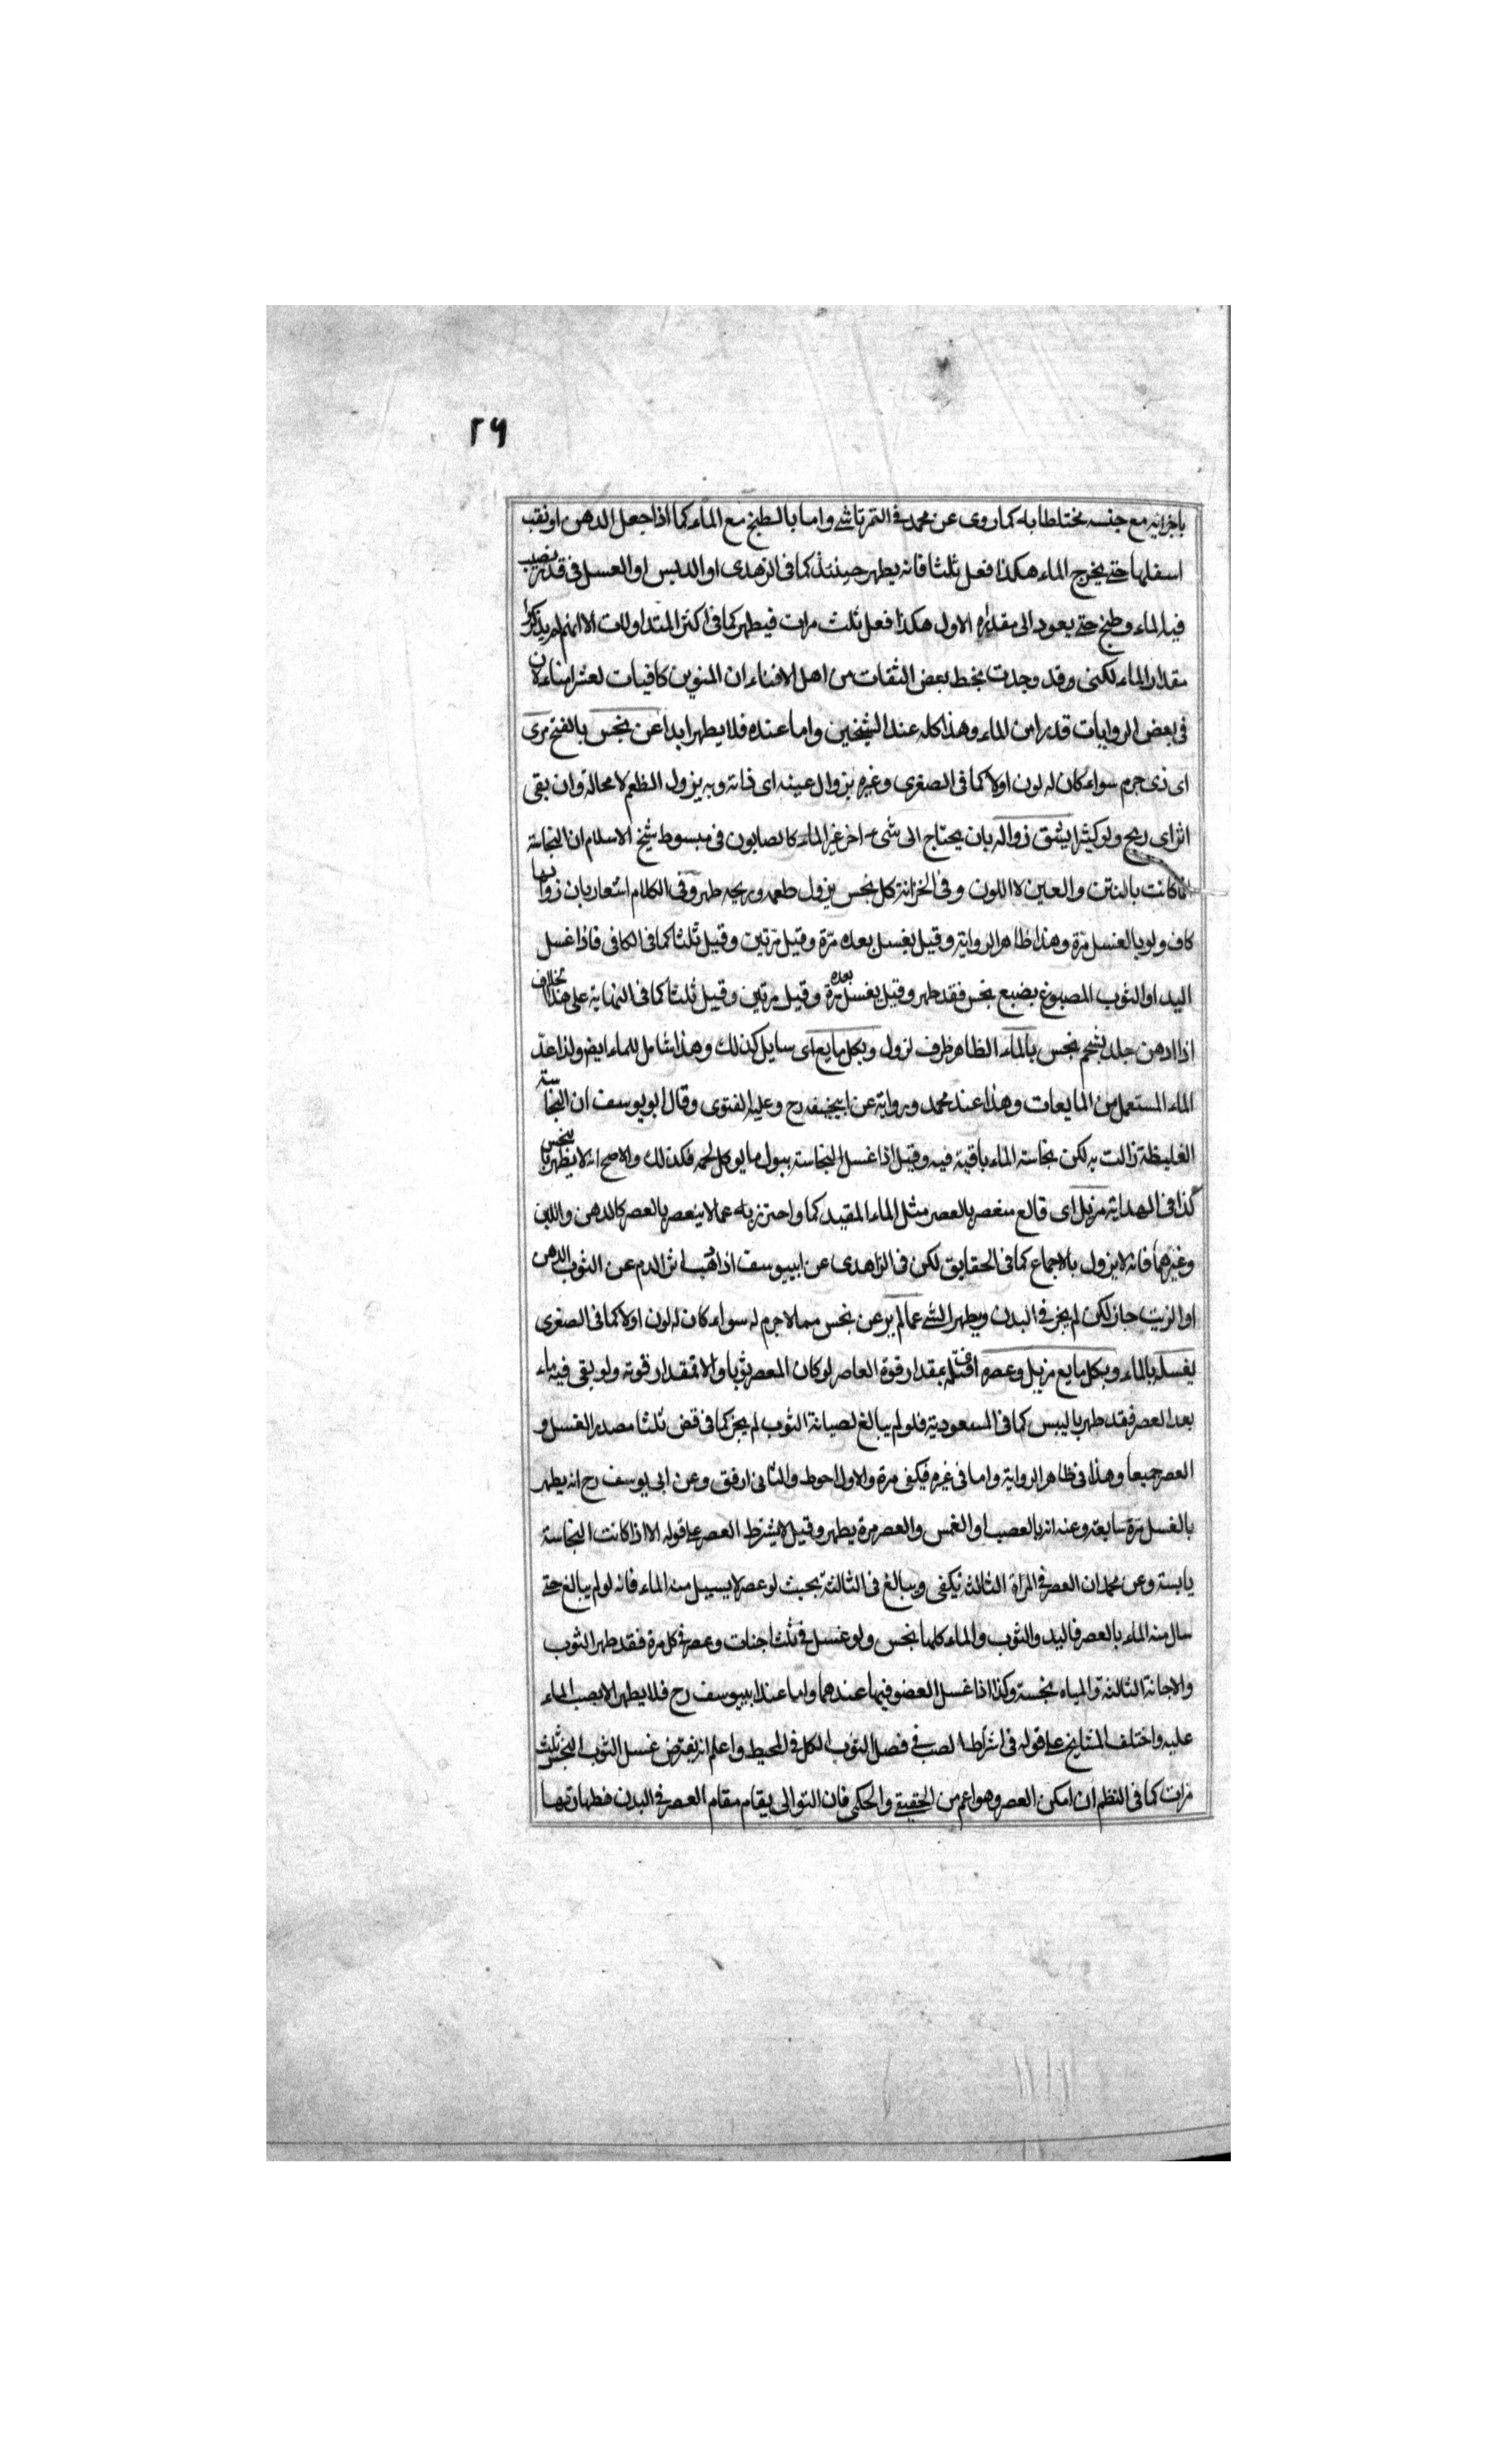 ٢٦
باجرائه مع جنسه مختلطا به كما روى عن محمد فى التمرتاشى واما بالطبخ مع الماء كما اذا جعل الدهن او نقب
اسفلها حتى يخرج الماء هكذا فعل ثلثا فانه يطهر حينئذ كما فى الزهدى او الدبس او العسل فى قدر يصب
فيه الماء وطبخ حتى يعود الى مقداره الاول هكذا فعل ثلث مرات فيطهر كما فى اكثر المتداولات الا انهم لم يذكروا
مقدار الماء لكنى وقد وجدت بخط بعض الثقات من اهل الافتاء ان المنوين كافيات لعشر امناء لان
فى بعض الروايات قدرا من الماء وهذا كله عند الشيخين واما عنده فلا يطهر ابدا عن نجس بالفتح مرى
اى ذى جرم سواء كان له لون اولا كما فى الصغرى وغيره بزوال عينه اى ذاته وبه يزول الطعم لا محالة وان بقى
اثر اى ريح ولو كثيرا يشق زواله بان يحتاج الى شىء اخر غير الماء كالصابون فى مبسوط شيخ الاسلام ان النجاسة
اذا كانت بالنتن والعين لا اللون وفى الخزانة كل نجس يزول طعمه وريحه طهر وفى الكلام اشعار بان زوالها
كاف ولو بالغسل مرة وهذا ظاهر الرواية وقيل يغسل بعده مرة وقيل مرتين وقيل ثلثا كما فى الكافى فاذا غسل
اليد او الثوب المصبوغ بصبغ نجس فقد طهر وقيل يغسل بعده مرة وقيل مرتين وقيل ثلثا كما فى النهاية على هذا بخلاف
اذا ادهن جلد بشحم نجس بالماء الطاهر ظرف لزول وبكل مايع اى سايل كذلك وهذا شامل للماء ايض ولذا عد
الماء المستعمل من المايعات وهذا عند محمد ورواية عن ابيحنيفه رح وعليه الفتوى وقال ابو يوسف ان النجاسة
الغليظة زالت به لكن نجاسة الماء باقية فيه وقيل اذا غسل النجاسة ببول ما يوكل لحمه فكذلك والاصح انه لا يطهر بنجس
كذا فى الهداية مزيل اى قالع منعصر بالعصر مثل الماء المقيد كما واحترز به عما لا ينعصر بالعصر كالدهن واللبن
وغيرهما فانه لا يزول بالاجماع كما فى الحقايق لكن فى الزاهدى عن ابييوسف اذا ذهب اثر الدم عن الثوب بالدهن
او الزيت جاز لكن لم يجز فى البدن ويطهر الشى عما لم ير عن نجس مما لا جرم له سواء كان له لون اولا كما فى الصغرى
بغسله بالماء وبكل مايع مزيل وعصره اى فتله بمقدار قوة العاصر لو كان المعصر ثوبا والا بمقدار قوته ولو بقى فيه ماء
بعد العصر فقد طهر باليبس كما فى المسعودية فلو لم يبالغ لصيانة الثوب لم يجز كما فى قض ثلثا مصدر الغسل و
العصر جميعا وهذا فى ظاهر الرواية واما فى غيره فيكفى مرة والاول احوط والثانى ارفق وعن ابى يوسف رح انه يطهر
بالغسل مرة سابعة وعنه انه بالعصب او الغمس والعصر مرة يطهر وقيل لا يشترط العصر على قوله الا اذا كانت النجاسة
يابسة وعن محمد ان العصر فى المراة الثالثة يكفى ويبالغ فى الثالثة بحيث لو عصر لا يسيل منه الماء فانه لو لم يبالغ حتى
سال منه الماء بالعصر فاليد والثوب والماء كلها نجس ولو غسل فى ثلث اجنات وعصر فى كل مرة فقد طهر الثوب
والاجانة الثالثة والمياه نجسة وكذا اذا غسل العضو فيها عندهما واما عند ابييوسف رح فلا يطهر الا بصب الماء
عليه واختلف المشايخ على قوله فى اشراط الصب فى فصل الثوب الكل فى المحيط واعلم انه يفترض غسل الثوب النجس ثلث
مرات كما فى النظم ان امكن العصر وهو اعم من الحقيقى والحكمى فان التوالى يقام مقام العصر فى البدن فطهارتها